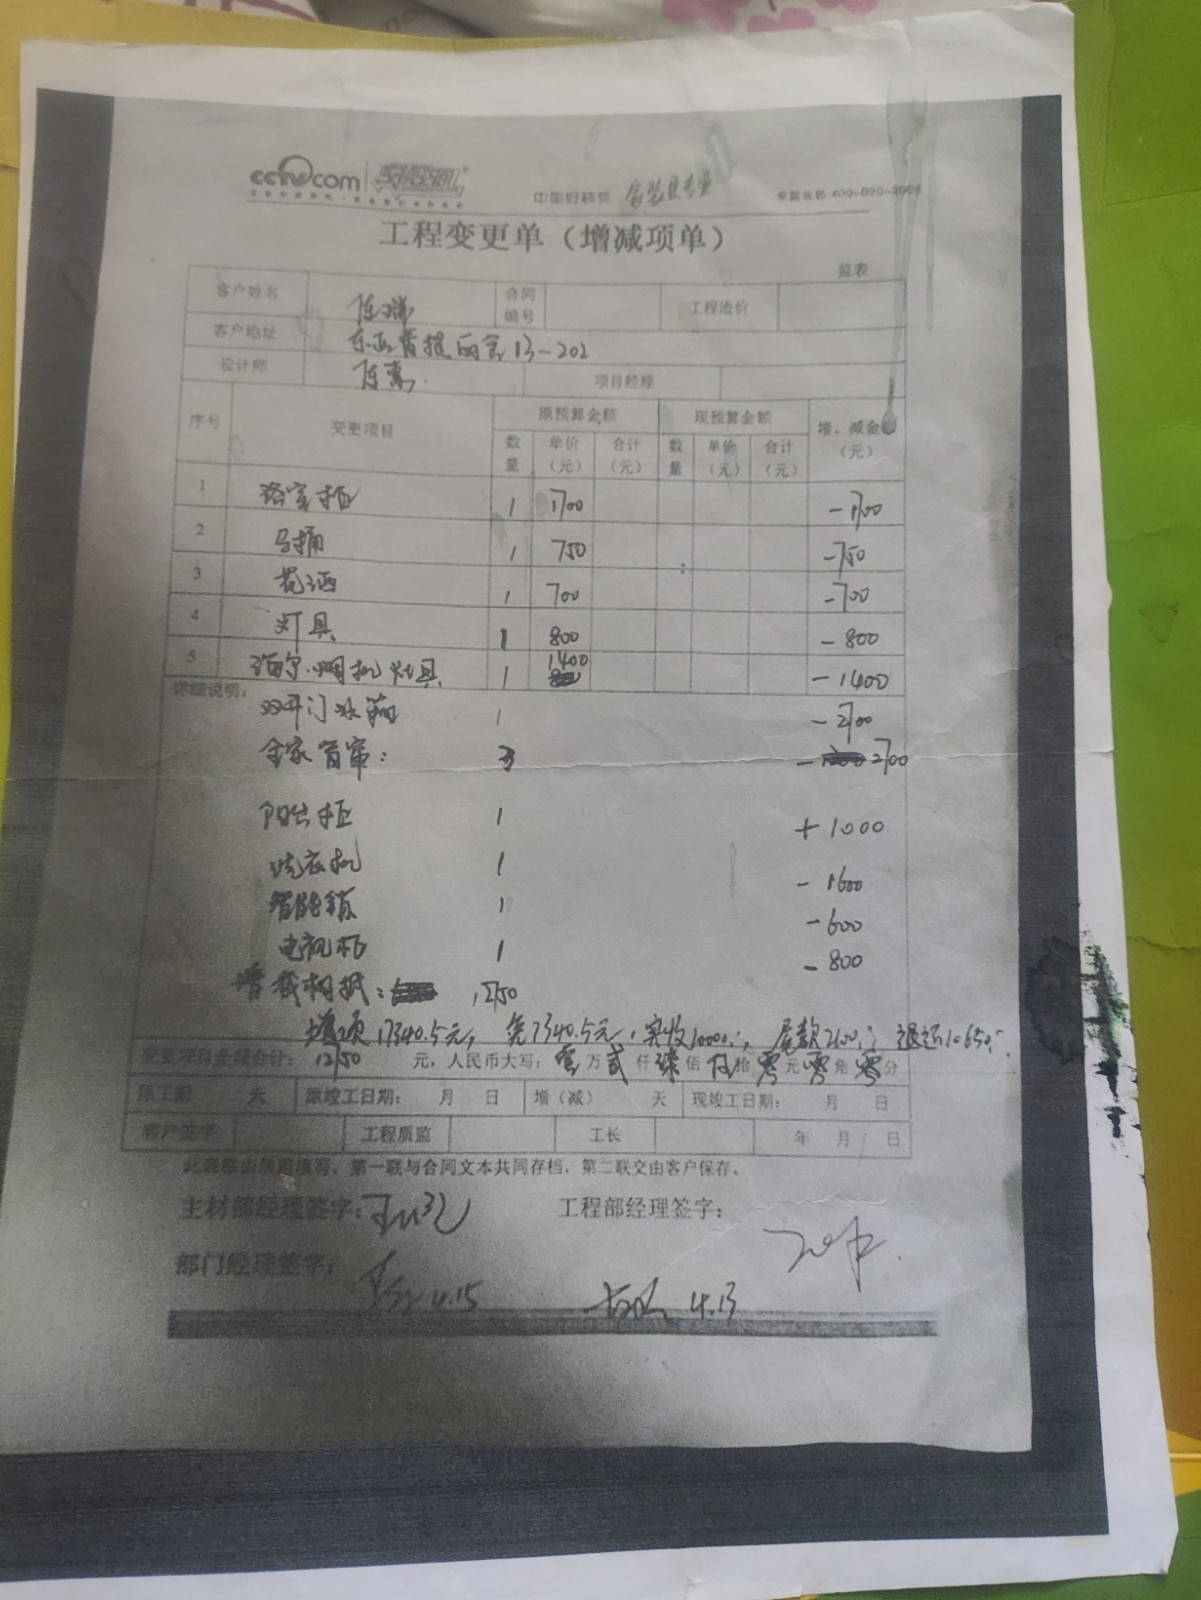 cctvcom 中国好装饰 家装更专业 全国咨询 400-070-2008
工程变更单（增减项单）
监表
客户姓名 陈瑞 合同编号 工程造价
客户地址 香提 13-202
设计师 陈惠 项目经理
序号 变更项目 原预算金额 现预算金额 增、减金（元）
数量 单价（元） 合计（元） 数量 单价（元） 合计（元）
1 浴室柜 1 1700 -1700
2 马桶 1 750 -750
3 花洒 1 700 -700
4 灯具 1 800 -800
5 海尔烟机灶具 1 1400 -1400
详细说明：
双开门冰箱 1 -2700
全家窗帘： 3 -2700
阳台柜 1 +1000
洗衣机 1 -1600
智能锁 1 -600
电视机 1 -800
增减相抵： 12750
增项17340.5元，免7340.5元，实收10000；尾款2100；退还10650.
变更项目金额合计： 12750 元，人民币大写：壹万贰仟柒佰伍拾零元零角零分
原工期 天 原竣工日期： 月 日 增（减） 天 现竣工日期： 月 日
客户签字 工程质监 工长 年 月 日
第一联与合同文本共同存档，第二联交由客户保存。
主材部经理签字： 工程部经理签字：
部门经理签字：
4.15 4.13